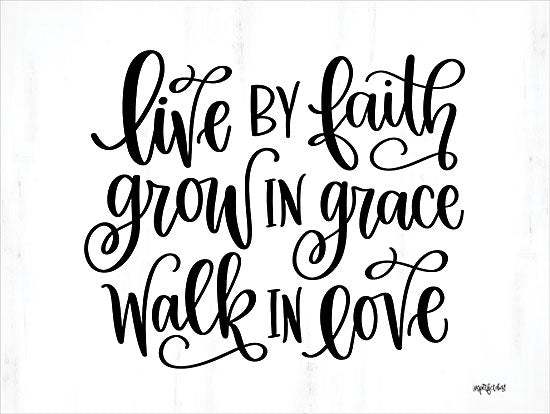 live BY faith
grow IN grace
walk IN love